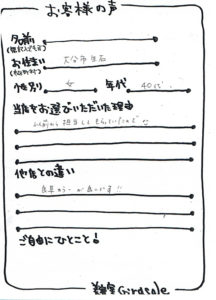 お客様の声
名前
お住まい 大分市生石
性別 女 年代 40代
当店をお選びいただいた理由
以前から担当してもらっていたので
他店との違い
白早カラーが良いです!!
ご自由にひとこと!
美容室 Girasole